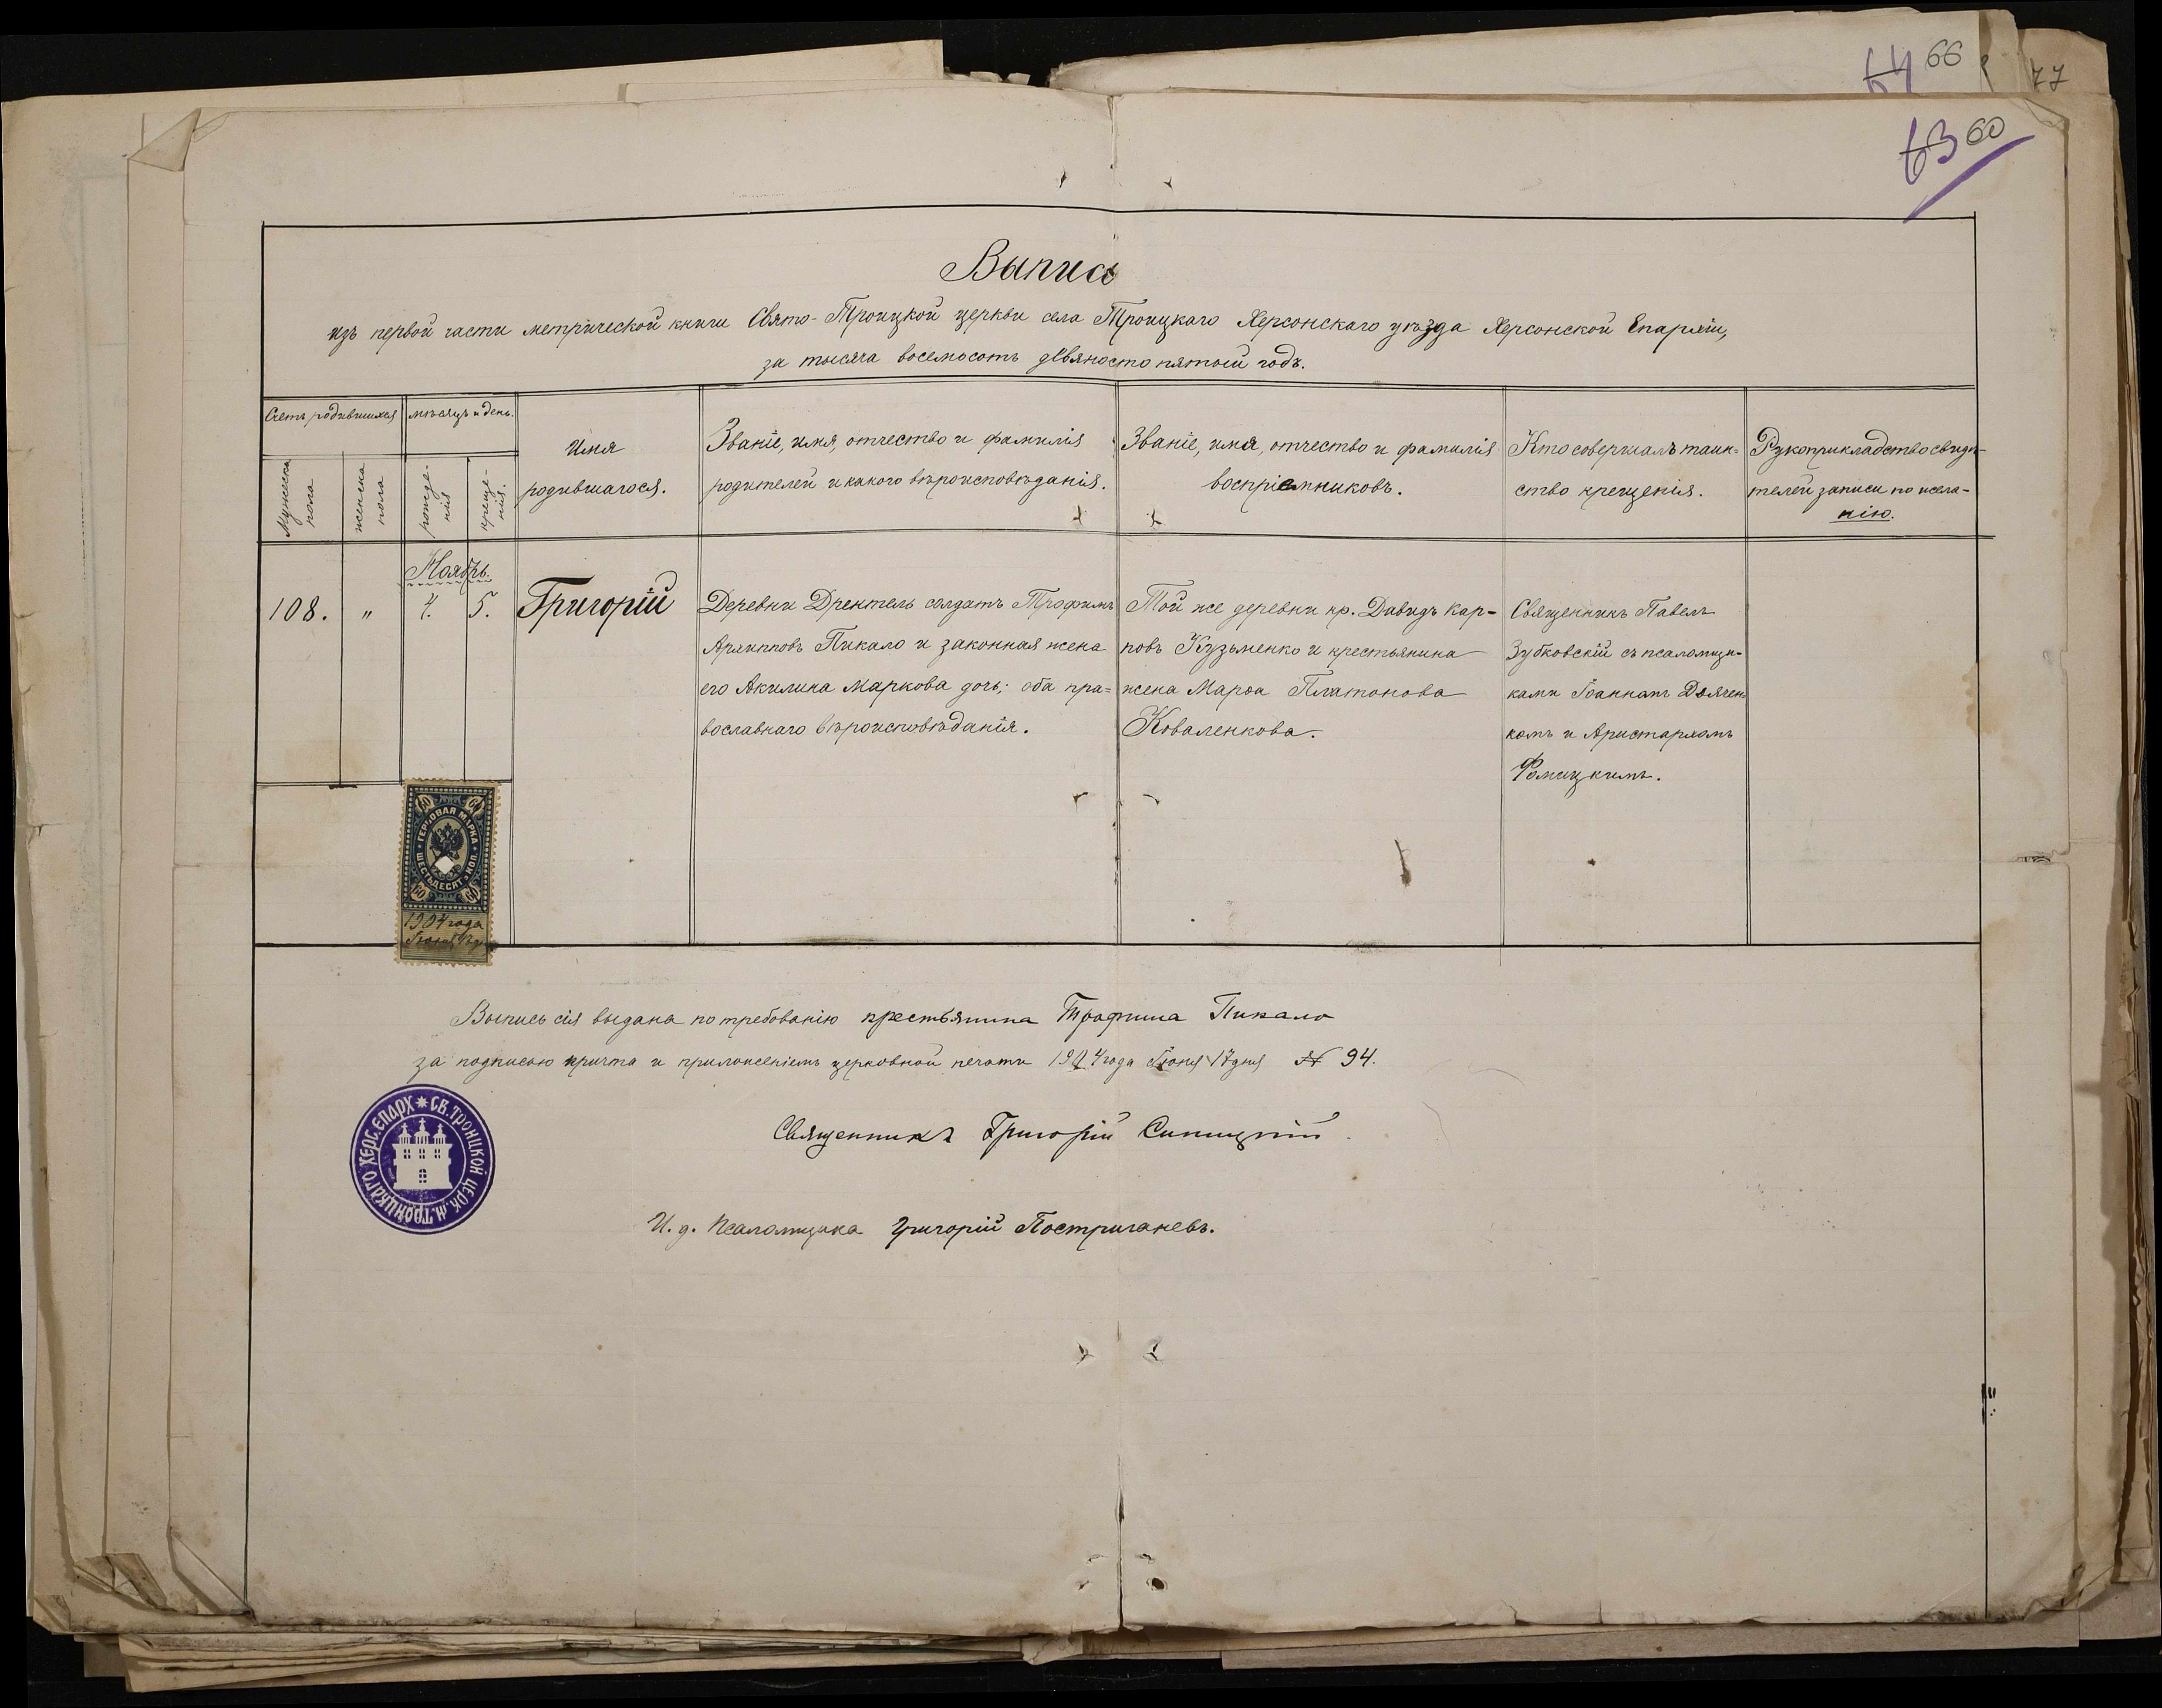 66
77
63 60
Выпись
изъ первой части метрической книги Свято-Троицкой церкви села Троицкаго Херсонскаго уѣзда Херсонской Епархіи,
за тысяча восемьсотъ девяносто пятый годъ.
Счетъ родившихся
мѣсяцъ и день.
Мужеска пола
женска пола
рожде-
нія
креще-
нія.
Имя
родившагося.
Званіе, имя, отчество и фамилія
родителей и какого вѣроисповѣданія.
Званіе, имя, отчество и фамилія
воспріемниковъ.
Кто совершалъ таин-
ство крещенія.
Рукоприкладство свидѣ-
телей записи по жела-
нію.
Ноябрь.
108.
"
4.
5.
Григорій
Деревни Дрентель солдатъ Трофимъ
Архипповъ Пикало и законная жена
его Акилина Маркова дочь; оба пра=
вославнаго вѣроисповѣданія.
Той же деревни кр. Давидъ Кар-
повъ Кузьменко и крестьянина
жена Марѳа Платонова
Коваленкова.
Священникъ Павелъ
Зубковскій съ псаломщи-
ками Іоанномъ Дьячен
комъ и Аристархомъ
60 60
ГЕРБОВАЯ МАРКА
ШЕСТЬДЕСЯТЪ КОП.
60 60
1904 года
Выпись сія выдана по требованію крестьянина Трофима Пикало
за подписью причта и приложеніемъ церковной печати 1904 года Іюня 17 дня № 94.
СВ. ТРОИЦКОЙ ЦЕРК. М. ТРОИЦКАГО ХЕРС. ЕПАРХ
Священникъ Григорій Синицкій
И. д. Псаломщика Григорій Постригачевъ.